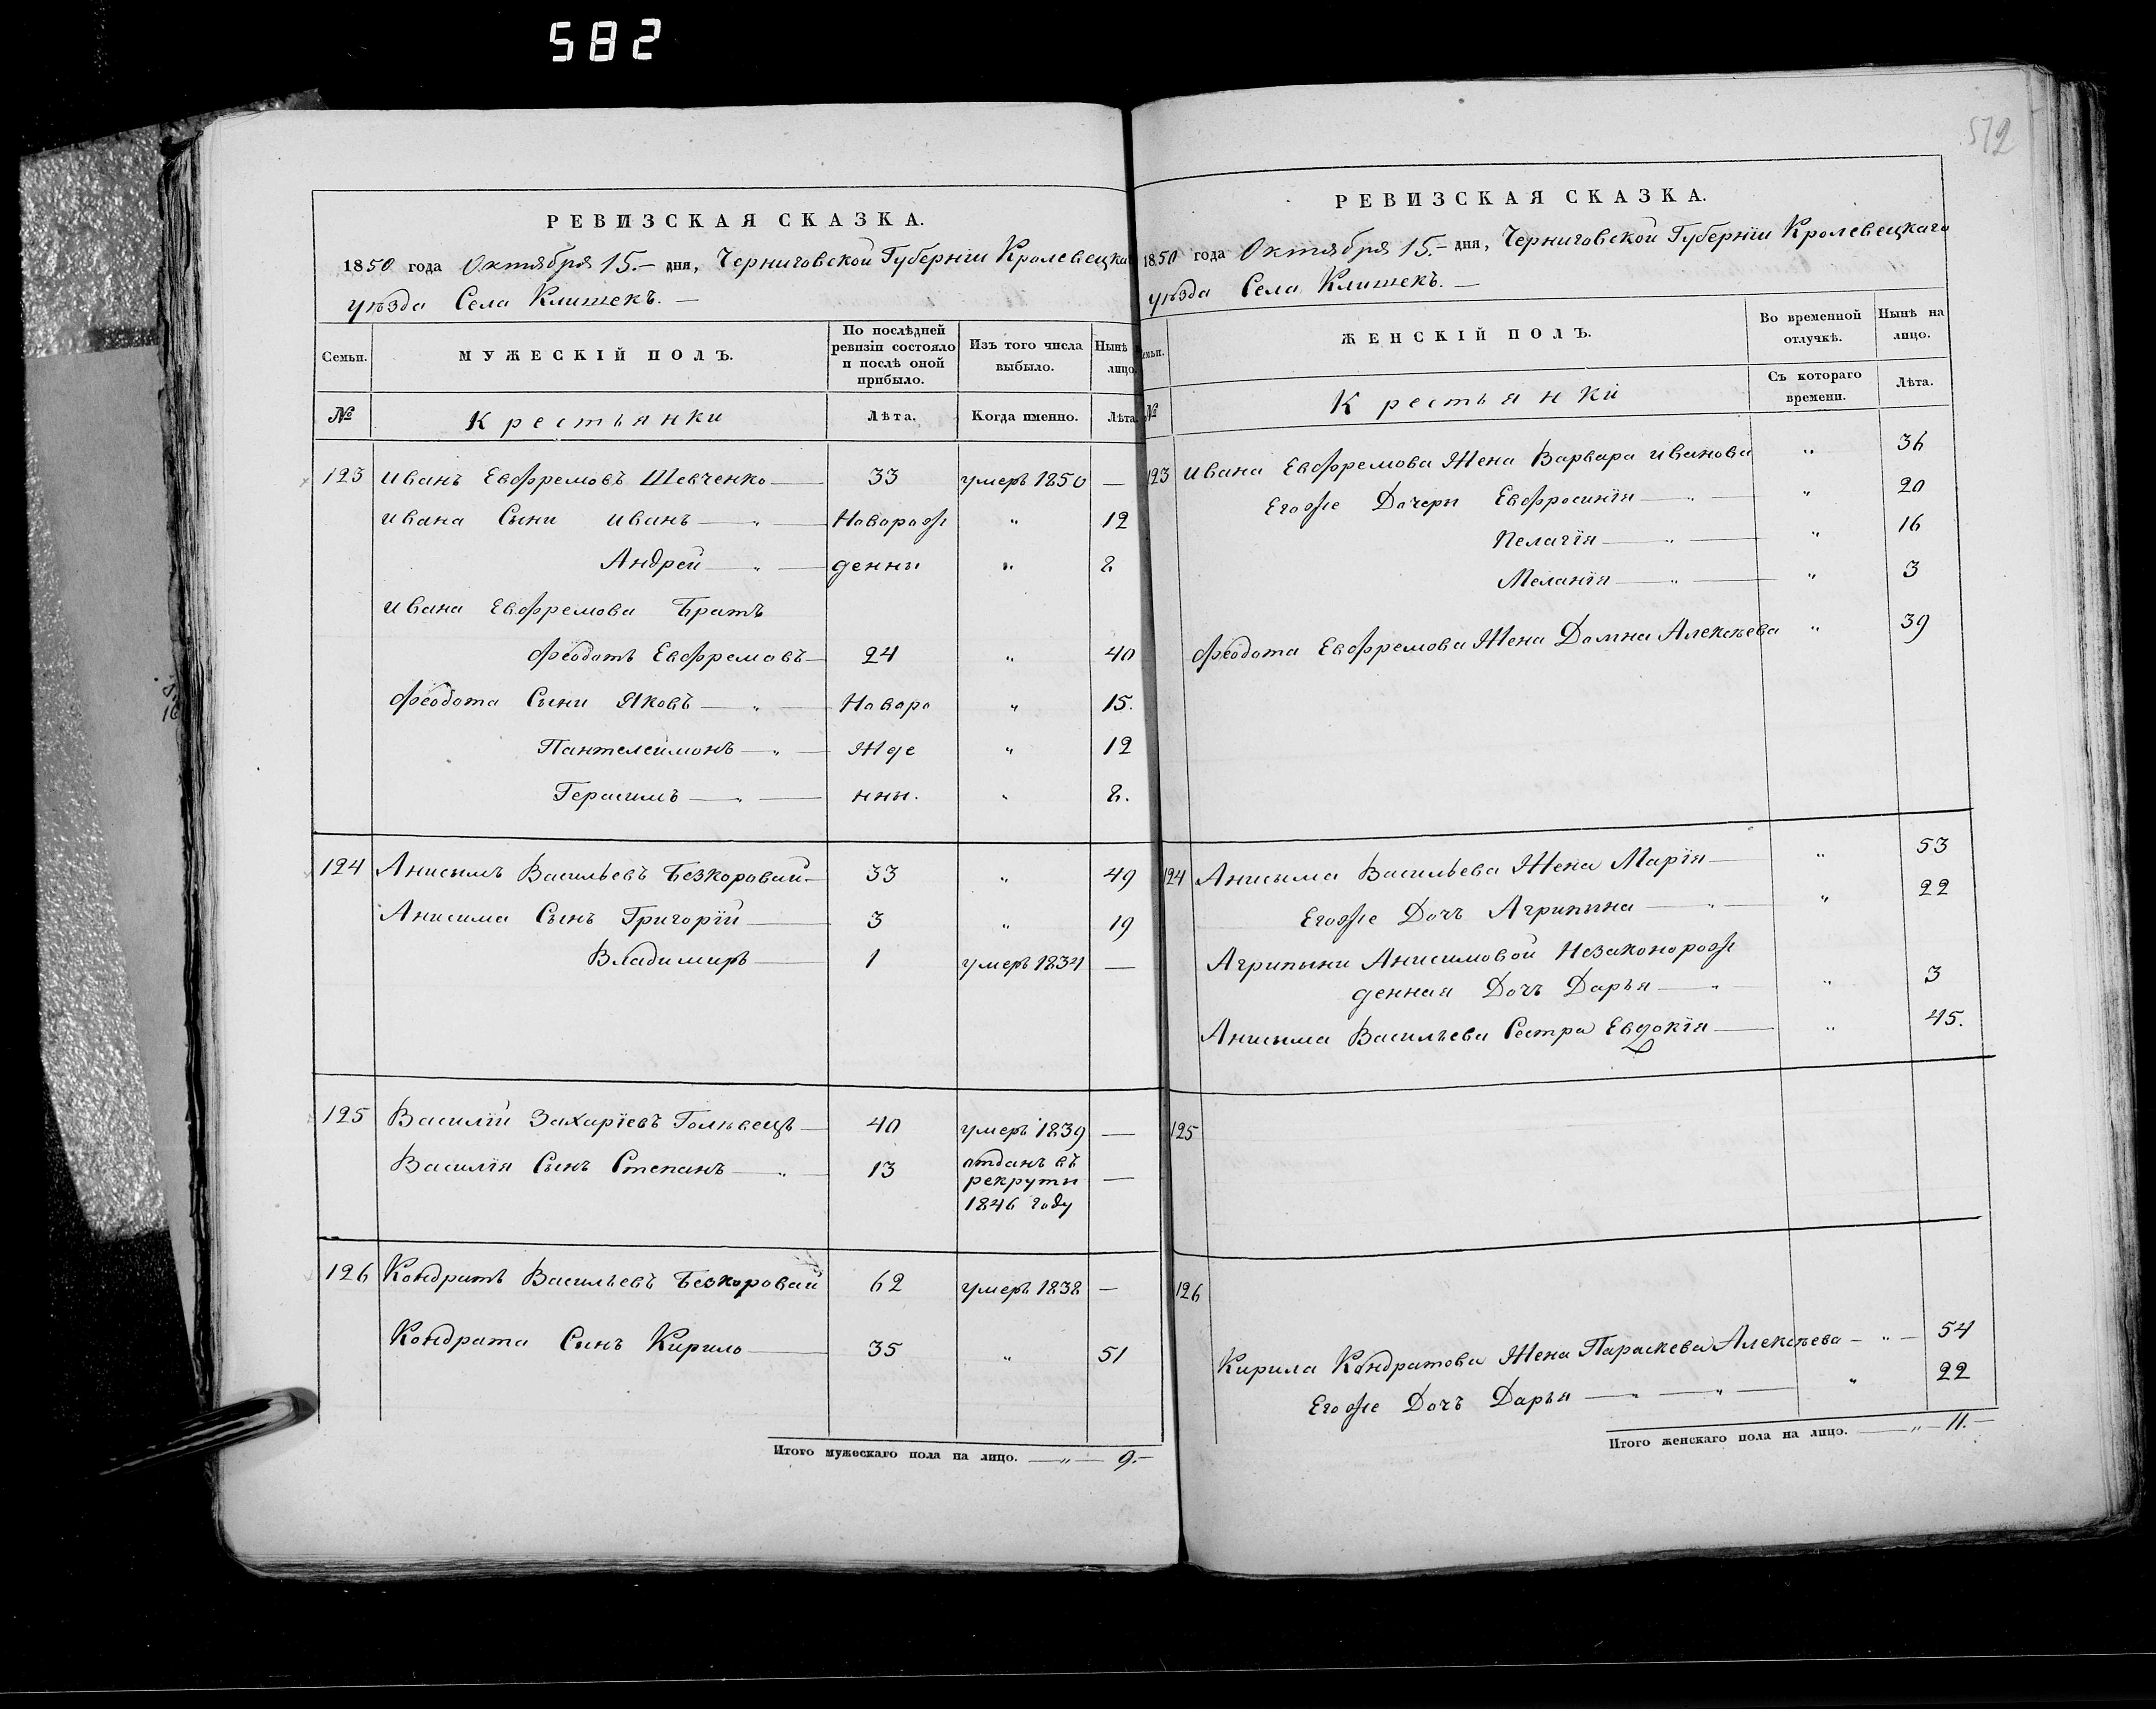 582
572
РЕВИЗСКАЯ СКАЗКА.
1850 года Октября 15.– дня, Черниговской Губерніи Кролевецка
уѣзда Села Клишекъ. –
Семьи.
МУЖЕСКІЙ ПОЛЪ.
По послѣдней ревизіи состояло и послѣ оной прибыло.
Изъ того числа выбыло.
Нынѣ лицо.
№
Крестьянки
Лѣта.
Когда именно.
Лѣта.
123 Иванъ Евфремовъ Шевченко — 33 умеръ 1850 —
Ивана Сыни Иванъ — „ — Геворож „ 12
Андрей — „ — денны „ 8
Ивана Евфремова Братъ
Феодотъ Евфремовъ — 24 „ 40
Феодота Сыни Яковъ — „ — Новоро „ 15.
Пантелеймонъ — „ — жде „ 12
Герасимъ — „ — нны. „ 8.
124 Анисымъ Васильевъ Безкоровай — 33 „ 49
Анисима Сынъ Григорій — 3 „ 19
Владимиръ — 1 умеръ 1834 —
125 Василій Захаріевъ Голѣвецъ — 40 умеръ 1839 —
Василія Сынъ Степанъ — „ — 13 отданъ въ
рекруты —
1846 году
126 Кондратъ Васильевъ Безкоровай 62 умеръ 1838 —
Кондрата Сынъ Кирило — 35 „ 51
Итого мужескаго пола на лицо. — „ — 9.–
РЕВИЗСКАЯ СКАЗКА.
1850 года Октября 15.– дня, Черниговской Губерніи Кролевецкаго
уѣзда Села Клишекъ. –
ЖЕНСКІЙ ПОЛЪ.
Во временной отлучкѣ.
Нынѣ на лицо.
№
Крестьянки
Съ котораго времени.
Лѣта.
123 Ивана Евфремова Жена Варвара Иванова „ 36
Егоже Дочери Евфросинія — „ — „ 20
Пелагія — „ — „ 16
Меланія — „ — „ 3
Феодота Евфремова Жена Домна Алексѣева „ 39
124 Анисыма Васильева Жена Марія — „ 53
Егоже Дочъ Агрипына — „ — „ 22
Агрипыни Анисимовой Незаконорож
денная Дочъ Дарья — „ — „ 3
Анисыма Васильева Сестра Евдокія — „ 45.
125
126
Кирила Кондратова Жена Параскева Алексѣева — „ — 54
Егоже Дочъ Дарья — „ — „ — „ 22
Итого женскаго пола на лицо. — „ — 11.–